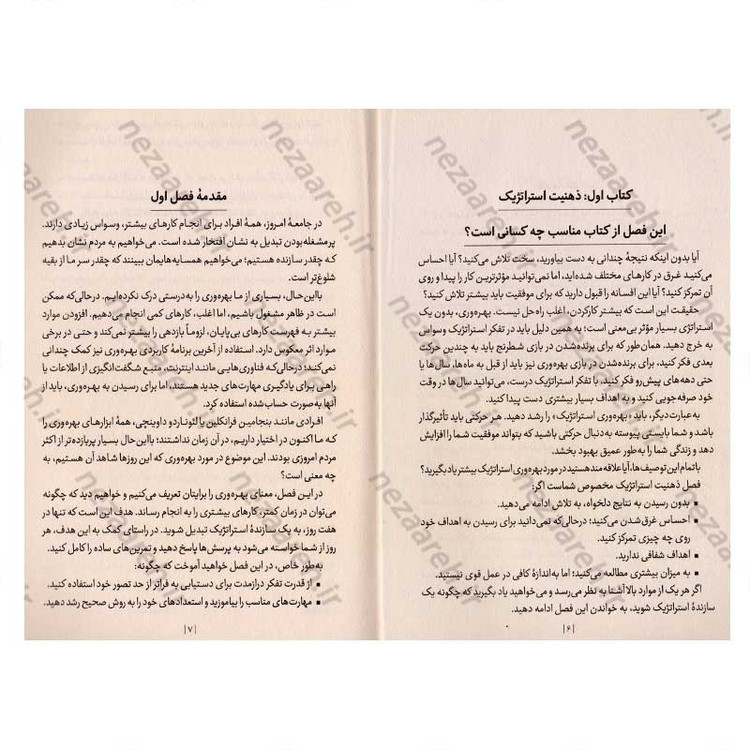 کتاب اول: ذهنیت استراتژیک
این فصل از کتاب مناسب چه کسانی است؟
آیا بدون اینکه نتیجهٔ چندانی به دست بیاورید، سخت تلاش می‌کنید؟ آیا احساس
می‌کنید غرق در کارهای مختلف شده‌اید، اما نمی‌توانید مؤثرترین کار را پیدا و روی
آن تمرکز کنید؟ آیا این افسانه را قبول دارید که برای موفقیت باید بیشتر تلاش کنید؟
حقیقت این است که بیشتر کارکردن، اغلب راه حل نیست. بهره‌وری، بدون یک
استراتژی بسیار مؤثر بی‌معنی است؛ به همین دلیل باید در تفکر استراتژیک وسواس
به خرج دهید. همان‌طور که برای برنده‌شدن در بازی شطرنج باید به چندین حرکت
بعدی فکر کنید، برای برنده‌شدن در بازی بهره‌وری نیز باید از قبل به ماه‌ها، سال‌ها یا
حتی دهه‌های پیش‌رو فکر کنید، با تفکر استراتژیک درست، می‌توانید سال‌ها در وقت
خود صرفه‌جویی کنید و به اهداف بسیار بیشتری دست پیدا کنید.
به‌عبارت دیگر، باید «بهره‌وری استراتژیک» را رشد دهید. هر حرکتی باید تأثیرگذار
باشد و شما بایستی پیوسته به‌دنبال حرکتی باشید که بتواند موفقیت شما را افزایش
دهد و زندگی شما را به‌طور عمیق بهبود بخشد.
باتمام این توصیف‌ها، آیا علاقه‌مند هستید در مورد بهره‌وری استراتژیک بیشتر یاد بگیرید؟
فصل ذهنیت استراتژیک مخصوص شماست اگر:
▪ بدون رسیدن به نتایج دلخواه، به تلاش ادامه می‌دهید.
▪ احساس غرق‌شدن می‌کنید؛ درحالی‌که نمی‌دانید برای رسیدن به اهداف خود
روی چه چیزی تمرکز کنید.
▪ اهداف شفافی ندارید.
▪ به میزان بیشتری مطالعه می‌کنید؛ اما به‌اندازهٔ کافی در عمل قوی نیستید.
اگر هر یک از موارد بالا آشنا به نظر می‌رسد و می‌خواهید یاد بگیرید که چگونه یک
سازندهٔ استراتژیک شوید، به خواندن این فصل ادامه دهید.
|۶|
مقدمهٔ فصل اول
در جامعهٔ امروز، همهٔ افراد برای انجام کارهای بیشتر، وسواس زیادی دارند.
پرمشغله‌بودن تبدیل به نشان افتخار شده است. می‌خواهیم به مردم نشان بدهیم
که چقدر سازنده هستیم؛ می‌خواهیم همسایه‌هایمان ببینند که چقدر سر ما از بقیه
شلوغ‌تر است.
بااین‌حال، بسیاری از ما بهره‌وری را به‌درستی درک نکرده‌ایم. درحالی‌که ممکن
است در ظاهر مشغول باشیم، اما اغلب، کارهای کمی انجام می‌دهیم. افزودن موارد
بیشتر به فهرست کارهای بی‌پایان، لزوماً بازدهی را بیشتر نمی‌کند و حتی در برخی
موارد اثر معکوس دارد. استفاده از آخرین برنامهٔ کاربردی بهره‌وری نیز کمک چندانی
نمی‌کند؛ درحالی‌که فناوری‌هایی مانند اینترنت، منبع شگفت‌انگیزی از اطلاعات یا
راهی برای یادگیری مهارت‌های جدید هستند، اما برای رسیدن به بهره‌وری، باید از
آنها به‌صورت حساب‌شده استفاده کرد.
افرادی مانند بنجامین فرانکلین یا لئوناردو داوینچی، همهٔ ابزارهای بهره‌وری را
که ما اکنون در اختیار داریم، در آن زمان نداشتند؛ بااین‌حال بسیار پربازده‌تر از اکثر
مردم امروزی بودند. این موضوع در مورد بهره‌وری که این روزها شاهد آن هستیم، به
چه معنی است؟
در این فصل، معنای بهره‌وری را برایتان تعریف می‌کنیم و خواهیم دید که چگونه
می‌توان در زمان کمتر، کارهای بیشتری را به انجام رساند. هدف این است که تنها در
هفت روز، به یک سازندهٔ استراتژیک تبدیل شوید. در راستای کمک به این هدف، هر
روز از شما خواسته می‌شود به پرسش‌ها پاسخ دهید و تمرین‌های ساده را کامل کنید.
به‌طور خاص، در این فصل خواهید آموخت که چگونه:
▪ از قدرت تفکر درازمدت برای دستیابی به فراتر از حد تصور خود استفاده کنید.
▪ مهارت‌های مناسب را بیاموزید و استعدادهای خود را به روش صحیح رشد دهید.
|۷|
nezaareh.ir
nezaareh.ir
nezaareh.ir
nezaareh.ir
nezaareh.ir
nezaareh.ir